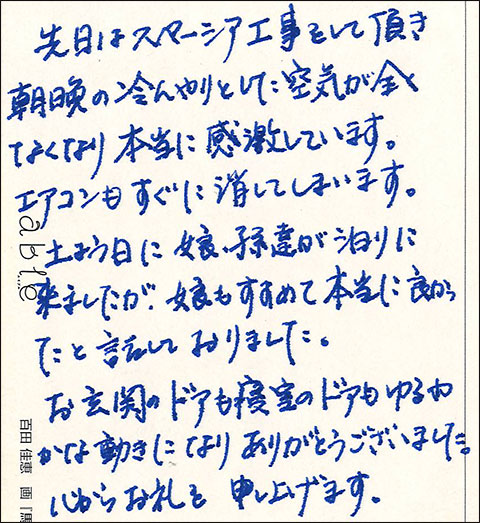 先日はスマーシア工事をして頂き
朝晩の冷んやりとした空気が全く
なくなり本当に感激しています。
エアコンもすぐに消してしまいます。
土よう日に娘、孫達が泊りに
来ましたが、娘もすすめて本当に良かっ
たと話しておりました。
お玄関のドアも寝室のドアもゆるや
かな動きになりありがとうございました。
心からお礼を申し上げます。
able
百田 佳恵 画